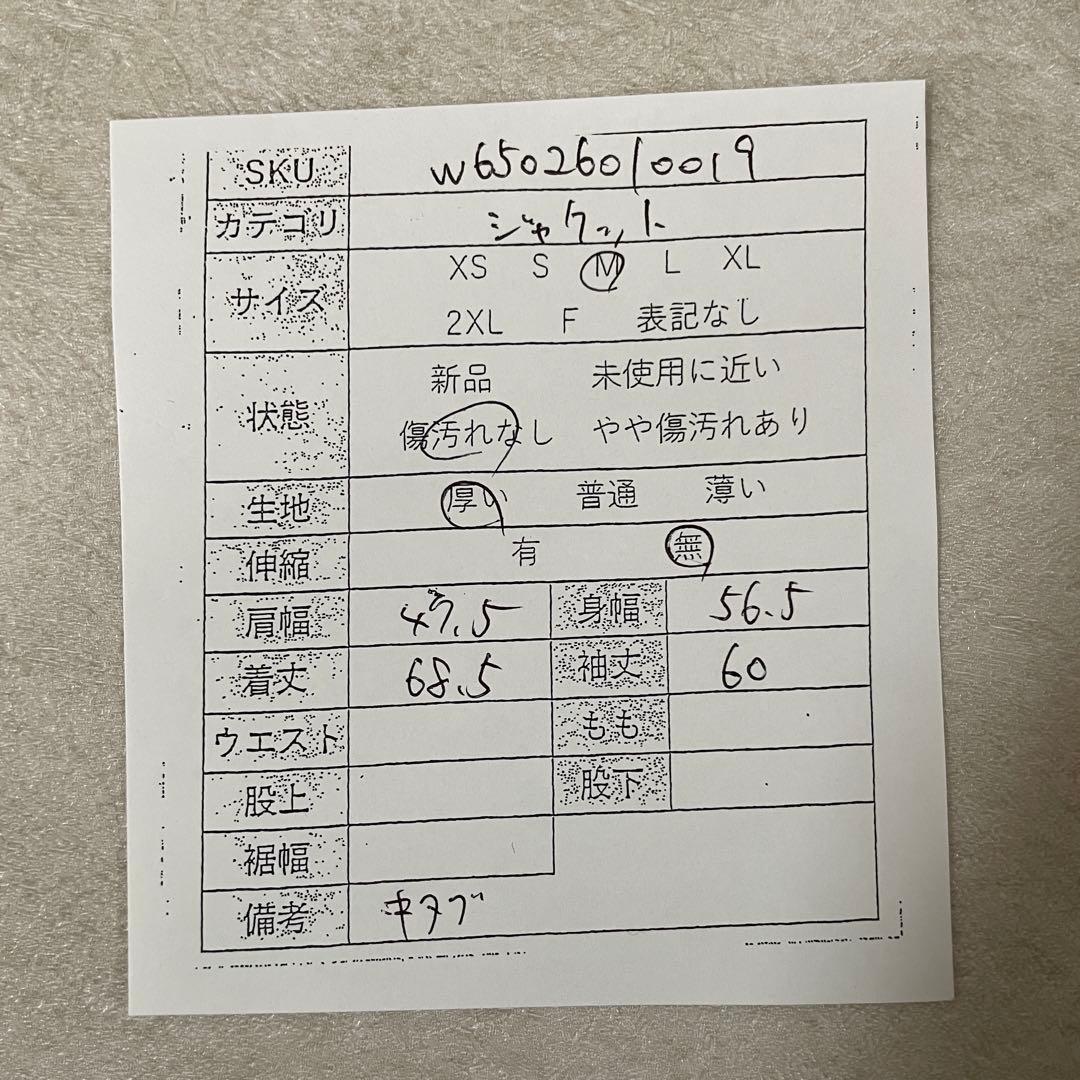 SKU w65026010019
カテゴリ ジャケット
サイズ XS S M L XL
2XL F 表記なし
状態 新品 未使用に近い
傷汚れなし やや傷汚れあり
生地 厚い 普通 薄い
伸縮 有 無
肩幅 47.5 身幅 56.5
着丈 68.5 袖丈 60
ウエスト もも
股上 股下
裾幅
備考 キタブ